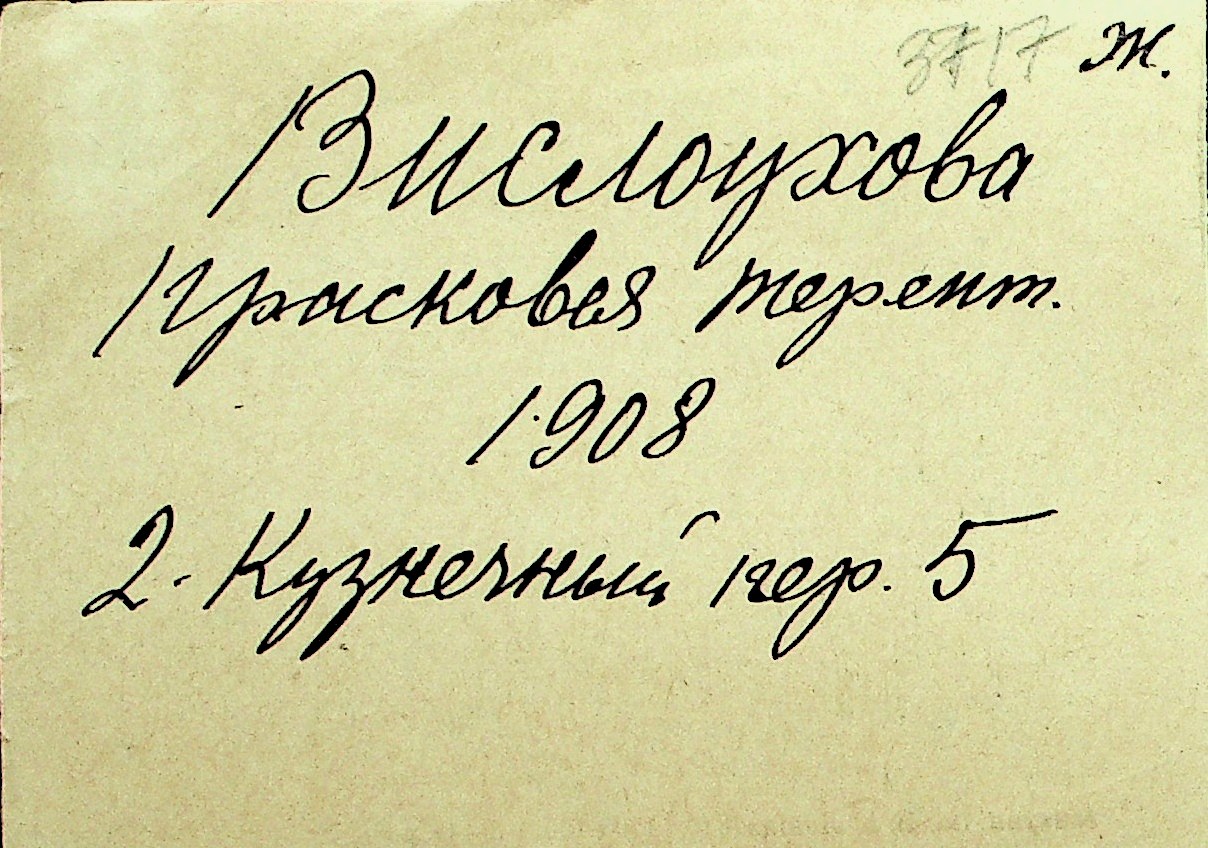 3717 Ж.
Вислоухова
Прасковья Терент.
1908
2. Кузнечный пер. 5